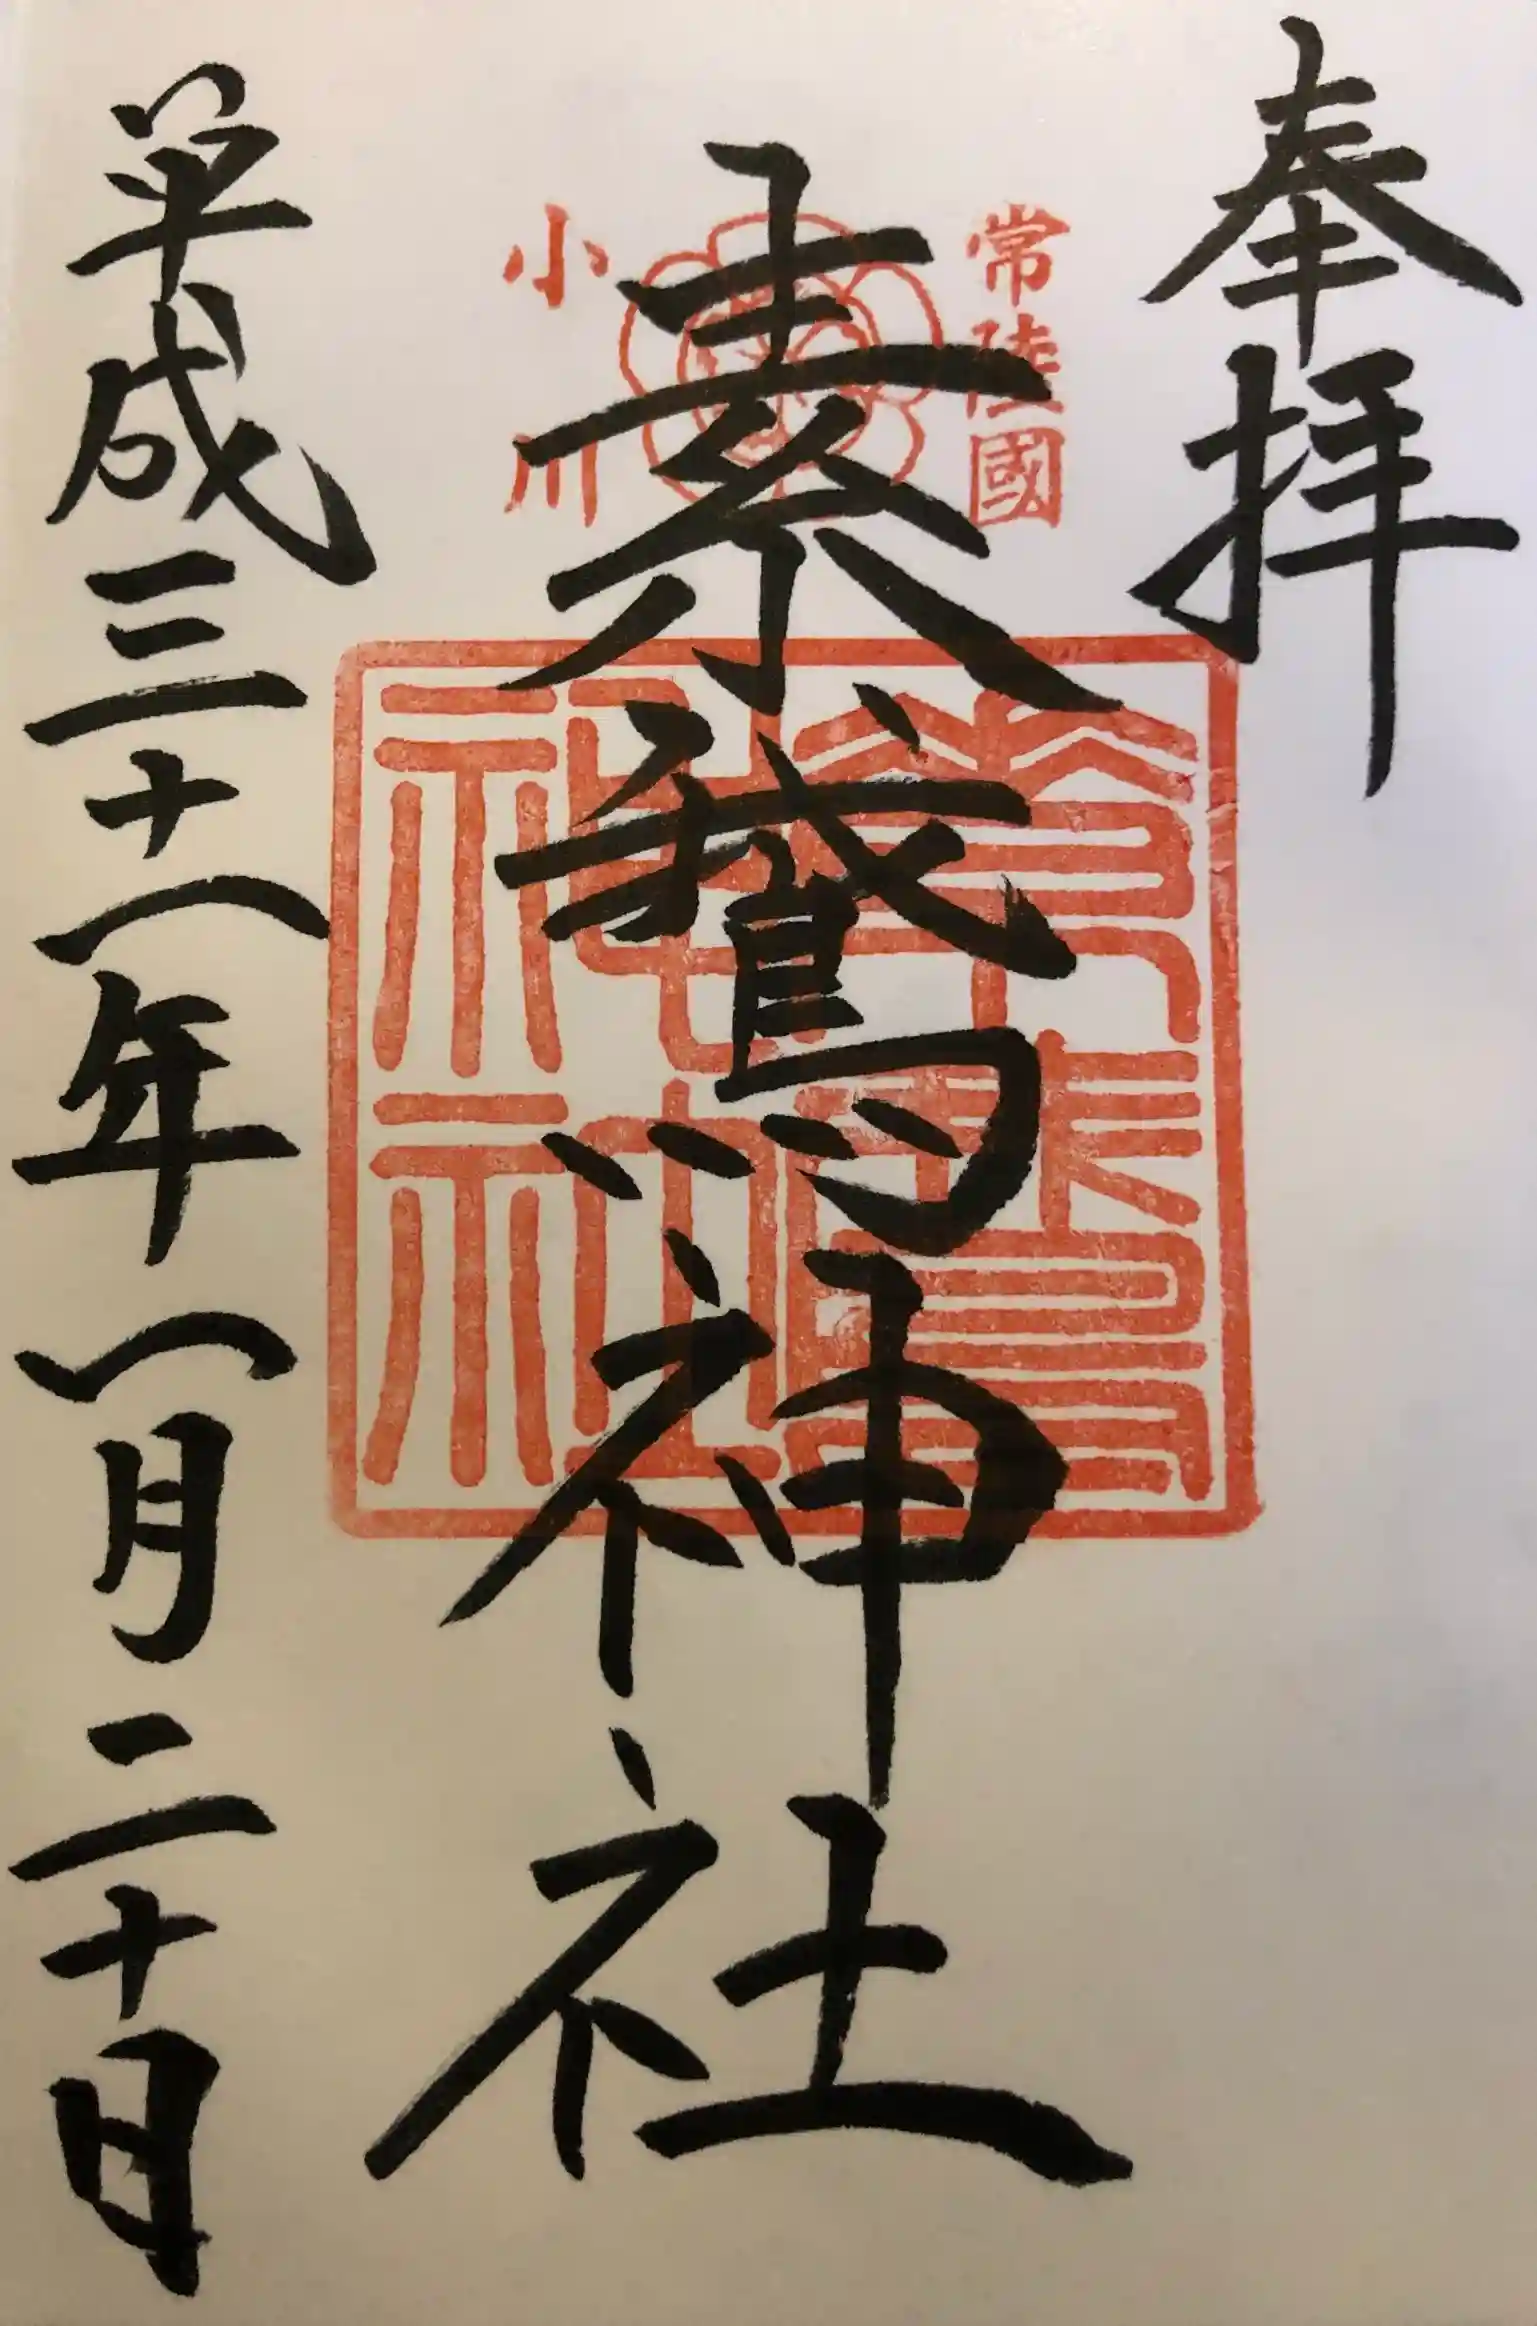 奉拝
常陸國
素鵞神社
小川
平成三十一年一月二十日